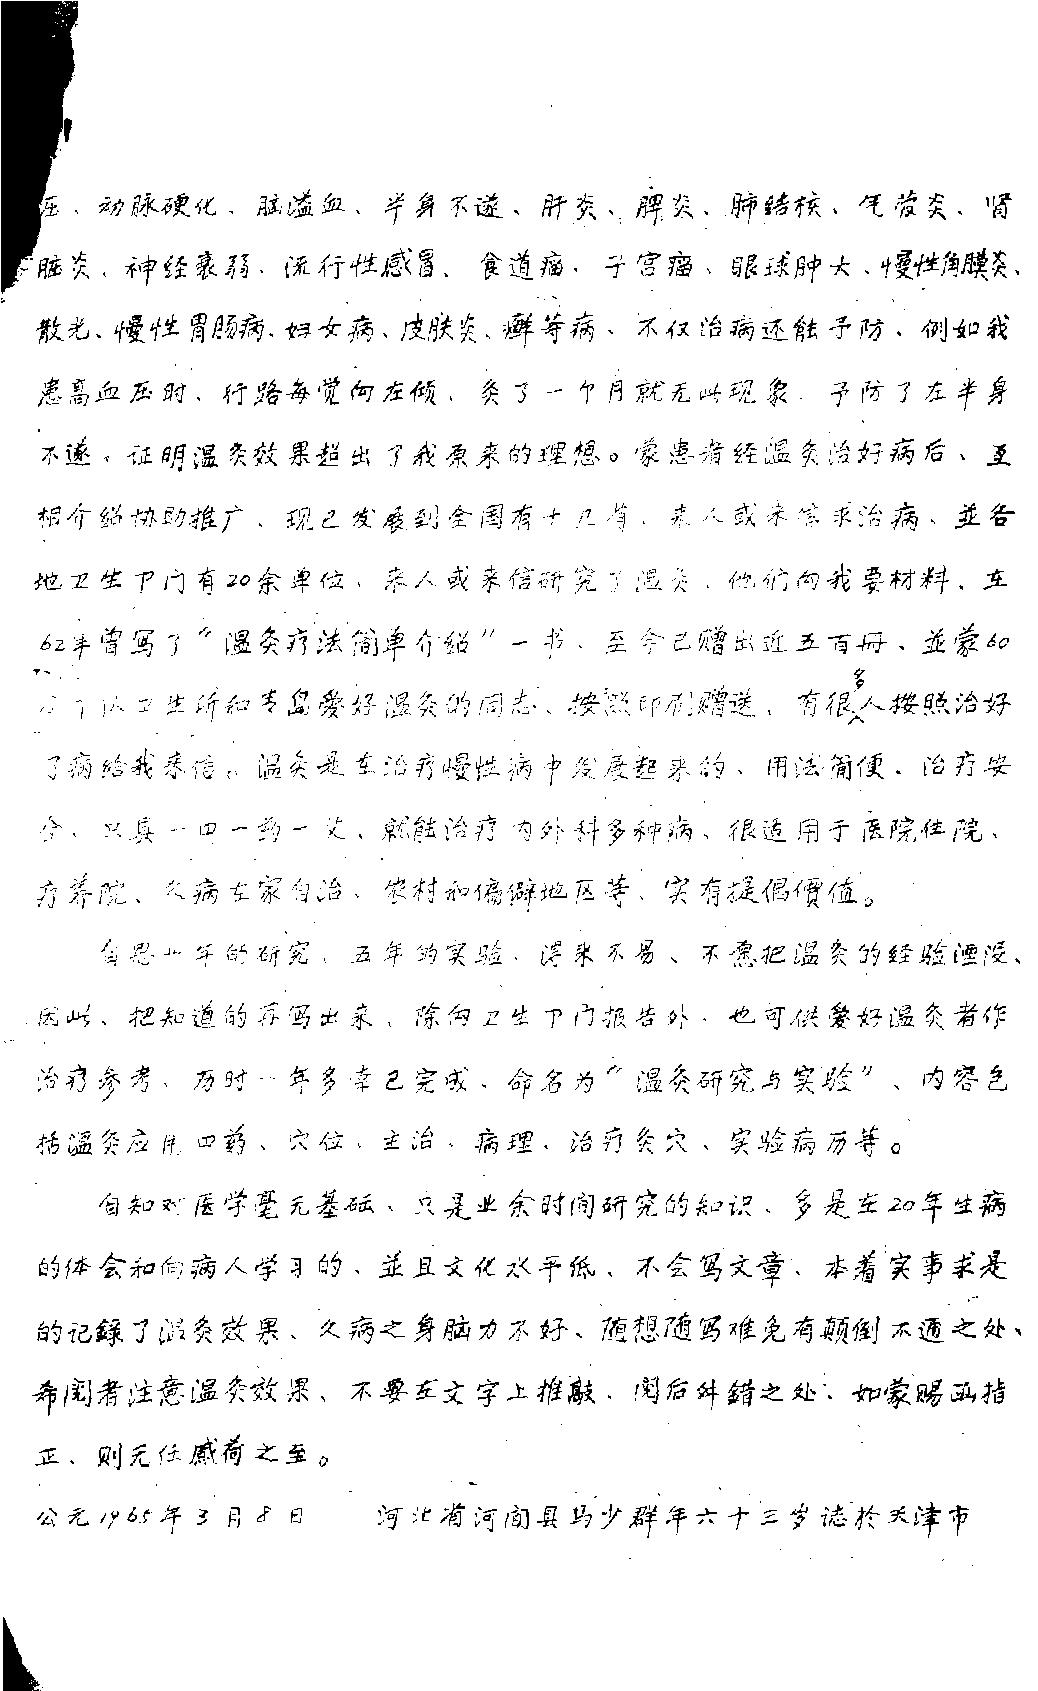 压、动脉硬化、脑溢血、半身不遂、肝炎、脾炎、肺结核、气管炎、肾
脏炎、神经衰弱、流行性感冒、食道瘤、子宫瘤、眼球肿大、慢性角膜炎、
散光、慢性胃肠病、妇女病、皮肤炎、癣等病、不仅治病还能予防、例如我
患高血压时、行路每觉向左倾、灸了一个月就无此现象、予防了左半身
不遂、证明温灸效果超出了我原来的理想。蒙患者经温灸治好病后、互
相介绍协助推广、现已发展到全国有十几省、来人或来信求治病、並各
地卫生卩门有20余单位、来人或来信研究了温灸、他们向我要材料、在
62年曾写了“温灸疗法简单介绍”一书、至今已赠出近五百册、並蒙60
卫生所和青岛爱好温灸的同志、按照印刷赠送、有很多人按照治好
了病给我来信。温灸是在治疗慢性病中发展起来的、用法简便、治疗安
全、只具一四一药一艾、就能治疗内外科多种病、很适用于医院住院、
疗养院、久病在家自治、农村和偏僻地区等、实有提倡價值。
自思廿年的研究、五年的实验、得来不易、不愿把温灸的经验湮没、
因此、把知道的再写出来、除向卫生卩门报告外、也可供爱好温灸者作
治疗参考、历时一年多幸已完成、命名为“温灸研究与实验”、内容包
括温灸应用四药、穴位、主治、病理、治疗灸穴、实验病历等。
自知对医学毫无基础、只是业余时间研究的知识、多是在20年生病
的体会和向病人学习的、並且文化水平低、不会写文章、本着实事求是
的记録了温灸效果、久病之身脑力不好、随想随写难免有颠倒不通之处、
希阅者注意温灸效果、不要在文字上推敲、阅后舛錯之处、如蒙赐函指
正、则无任感荷之至。
公元1965年3月8日 河北省河间县马少群年六十三岁誌於天津市